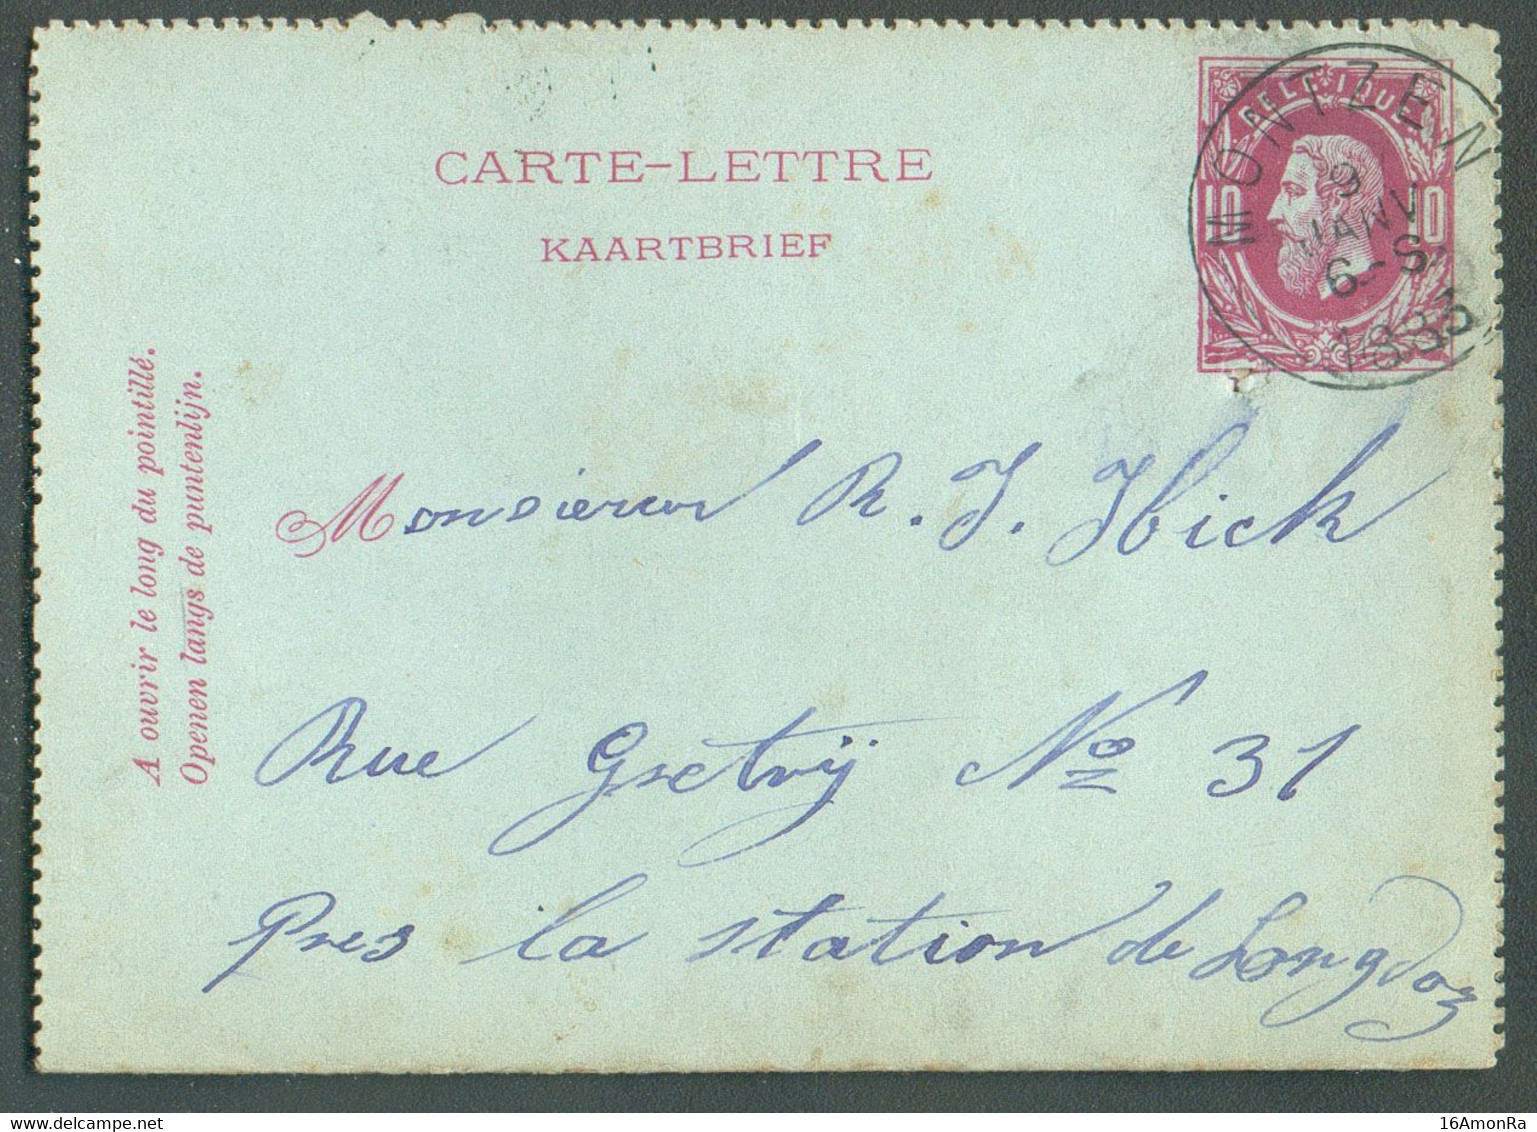 CARTE-LETTRE
KAARTBRIEF
BELGIQUE
10 10
MONTZEN
9
JANV
6-S
1883
A ouvrir le long du pointillé.
Openen langs de puntenlijn.
Monsieur R. J. Hick
Rue Gretrÿ No 31
Pres la station de Longdoz
16AmonRa